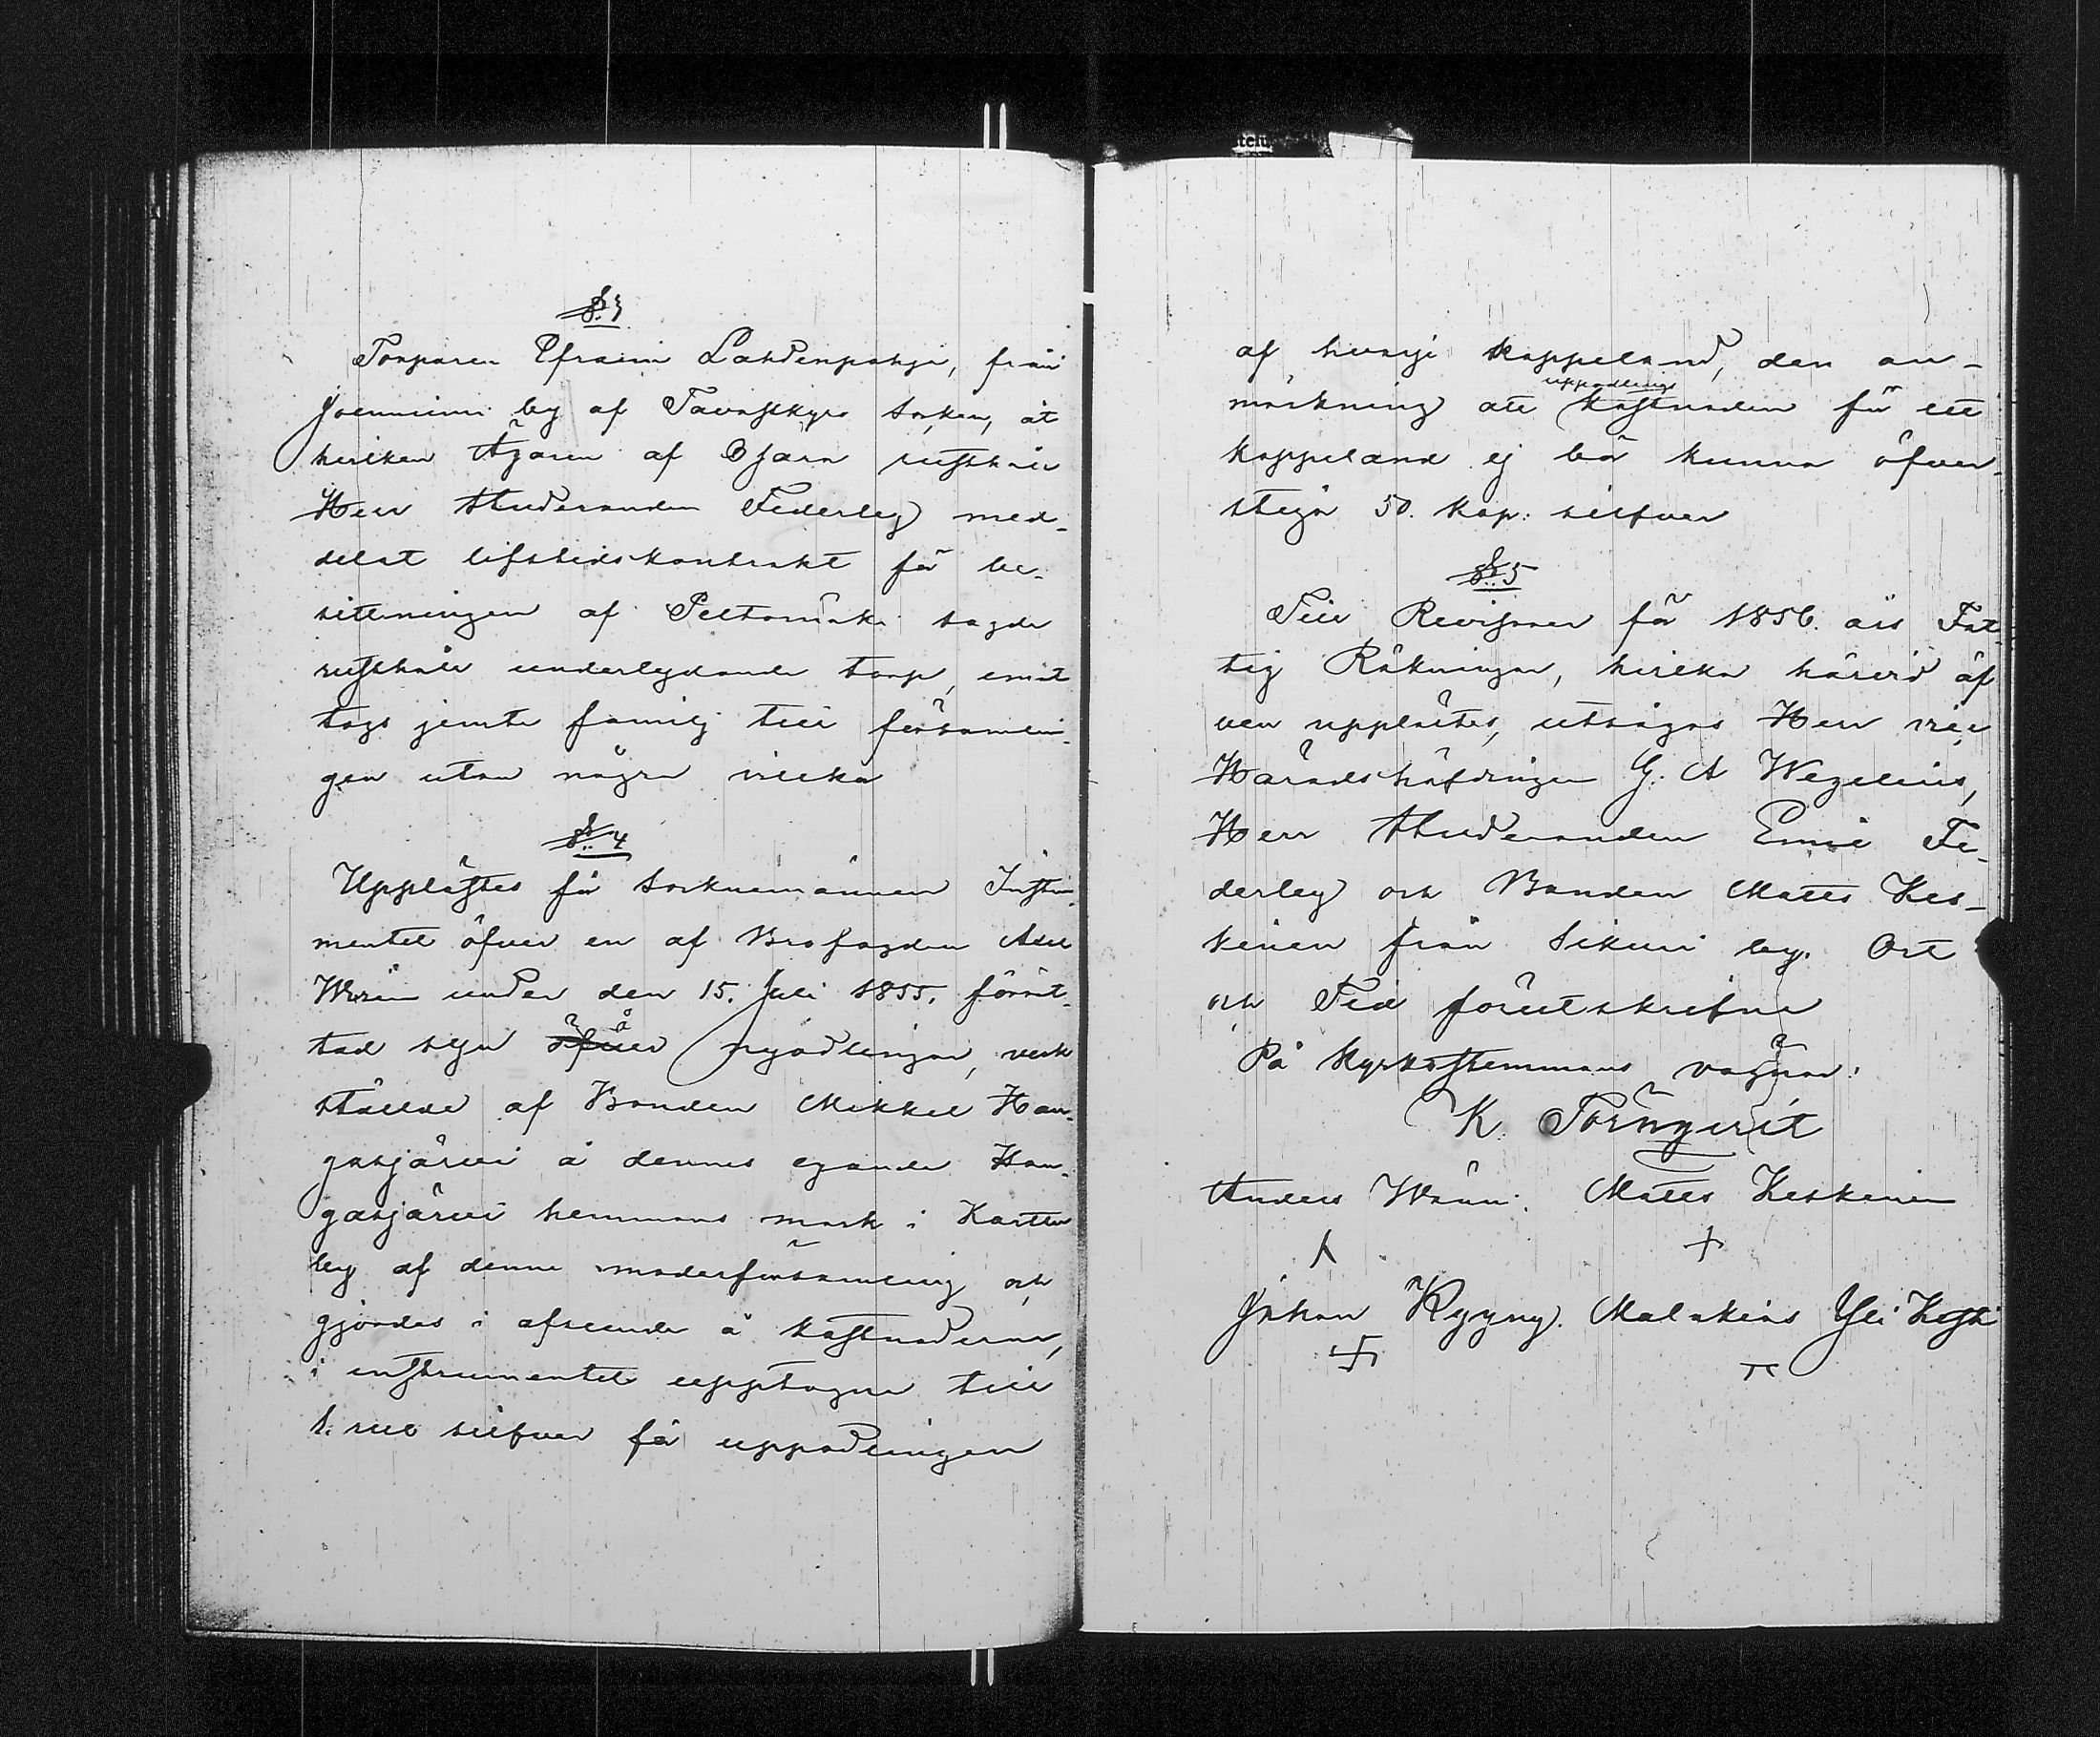 §.3
Torparen Efraim Lahdenpohja, från
Joenniemi by af Tavastkyro Socken, åt
hvilken Ägaren af Osara rusthåll
Herr Studeranden Federley med-
delat lifstidskontrakt för be-
sittningen af Peltomäki sagde
rusthåll underlydande torp, emot
togs jemte familj till församlin-
gen utan några vilkor
§.4
Upplästes för Socknemännen Instru-
mentet öfver en af Brofogden Adel
under den 15. Juli 1855. förrät-
tad syn öfver å nyodlingar, verk
stälde af Bonden Mikkel Han-
gasjärvi å dennes egande Han-
gasjärvi hemmans mark i Karttu
by af denne moderförsamling och
gjordes i afseende å kostnaderna,
i instrumentet upptagne till
1. rub silfver för uppodlingen
af hvarje kappeland, den an-
märkning att uppodlings kostnaden för ett
kappeland ej bör kunna öfver-
stiga 50. kop: silfver
§.5
Till Revisorer för 1856. års Fat-
tig Räkningar, hvilka härvid äf
ven upplästes, utsågos Herr vice
Häradshöfdingen G. A Wegelius,
Herr Studeranden Emil Fe-
derley och Bonden Matts Kes-
kinen från Sikuri by. Ort
och Tid förutskrifne
På Kyrkostemmans vägnar:
K. Törnqvist
Anders Wänni. Matts Keskinen
Johan Kyyny. Malakias Yli Keski